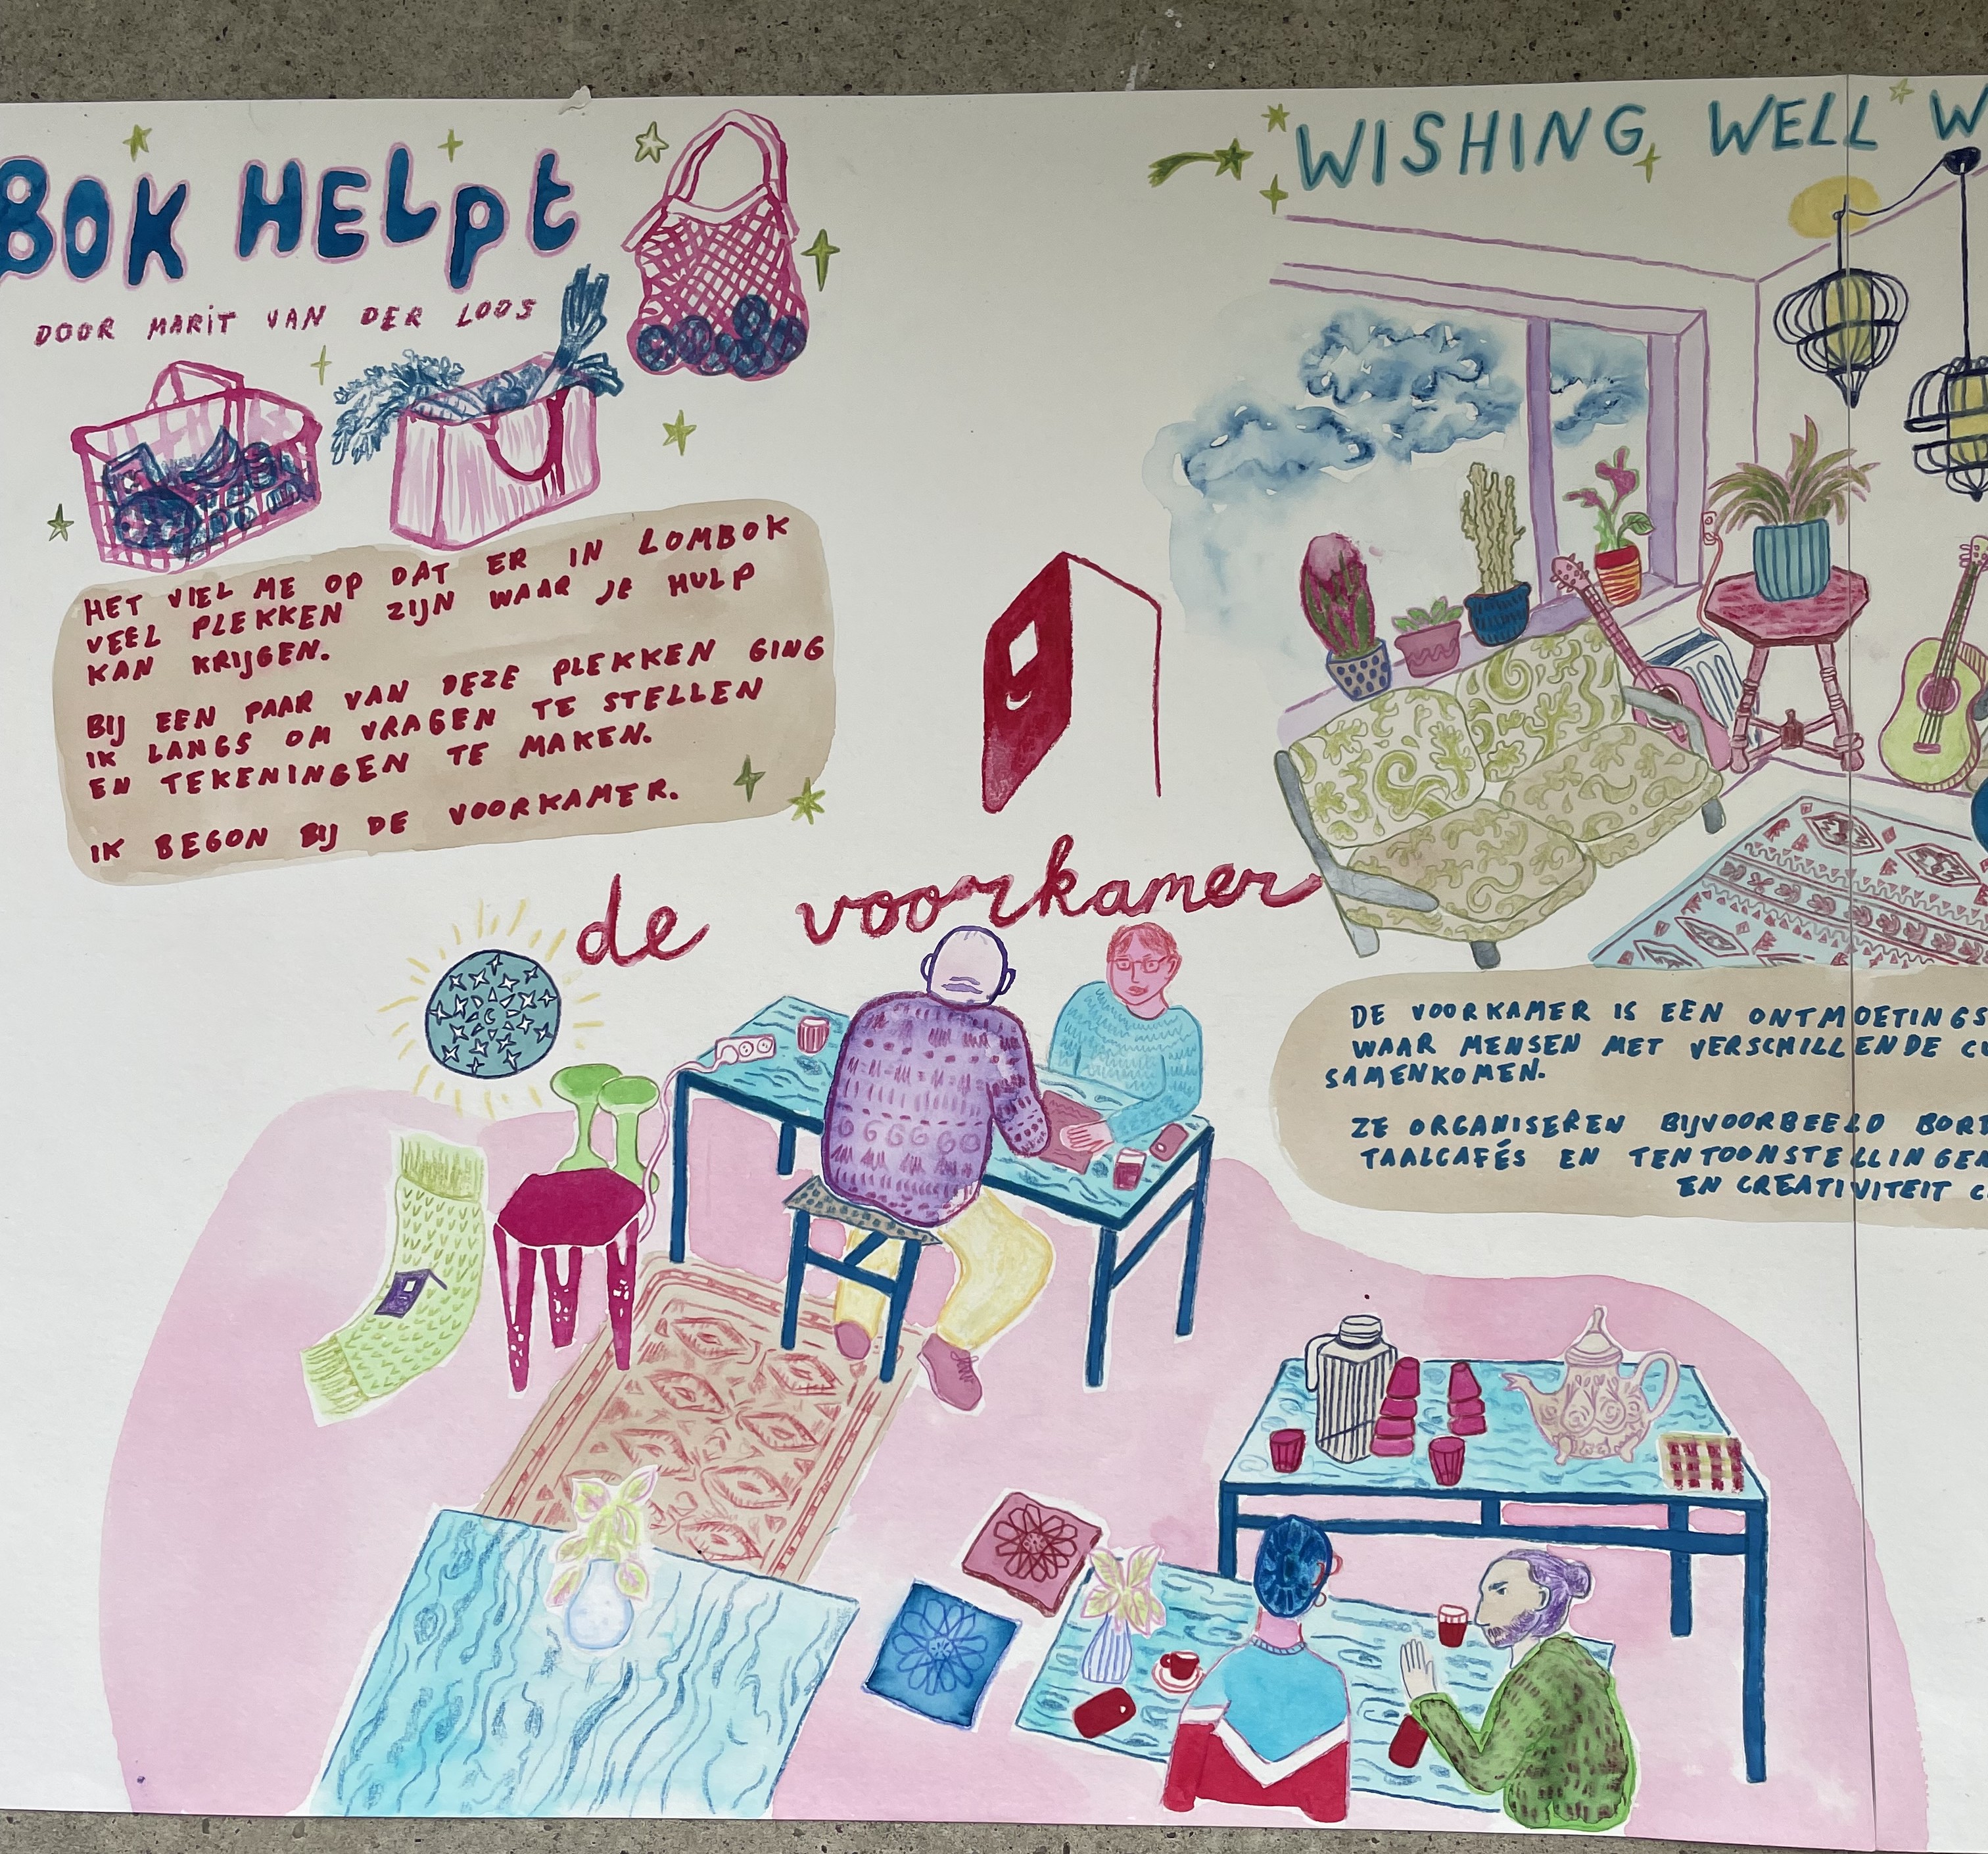 BOK HELpt
DOOR MARIT VAN DER LOOS
HET VIEL ME OP DAT ER IN LOMBOK
VEEL PLEKKEN ZIJN WAAR JE HULP
KAN KRIJGEN.
BIJ EEN PAAR VAN DEZE PLEKKEN GING
IK LANGS OM VRAGEN TE STELLEN
EN TEKENINGEN TE MAKEN.
IK BEGON BIJ DE VOORKAMER.
de voorkamer
WISHING WELL W
DE VOORKAMER IS EEN ONTMOETINGS
WAAR MENSEN MET VERSCHILLENDE CU
SAMENKOMEN.
ZE ORGANISEREN BIJVOORBEELD BOR
TAALCAFÉS EN TENTOONSTELLINGEN
EN CREATIVITEIT C